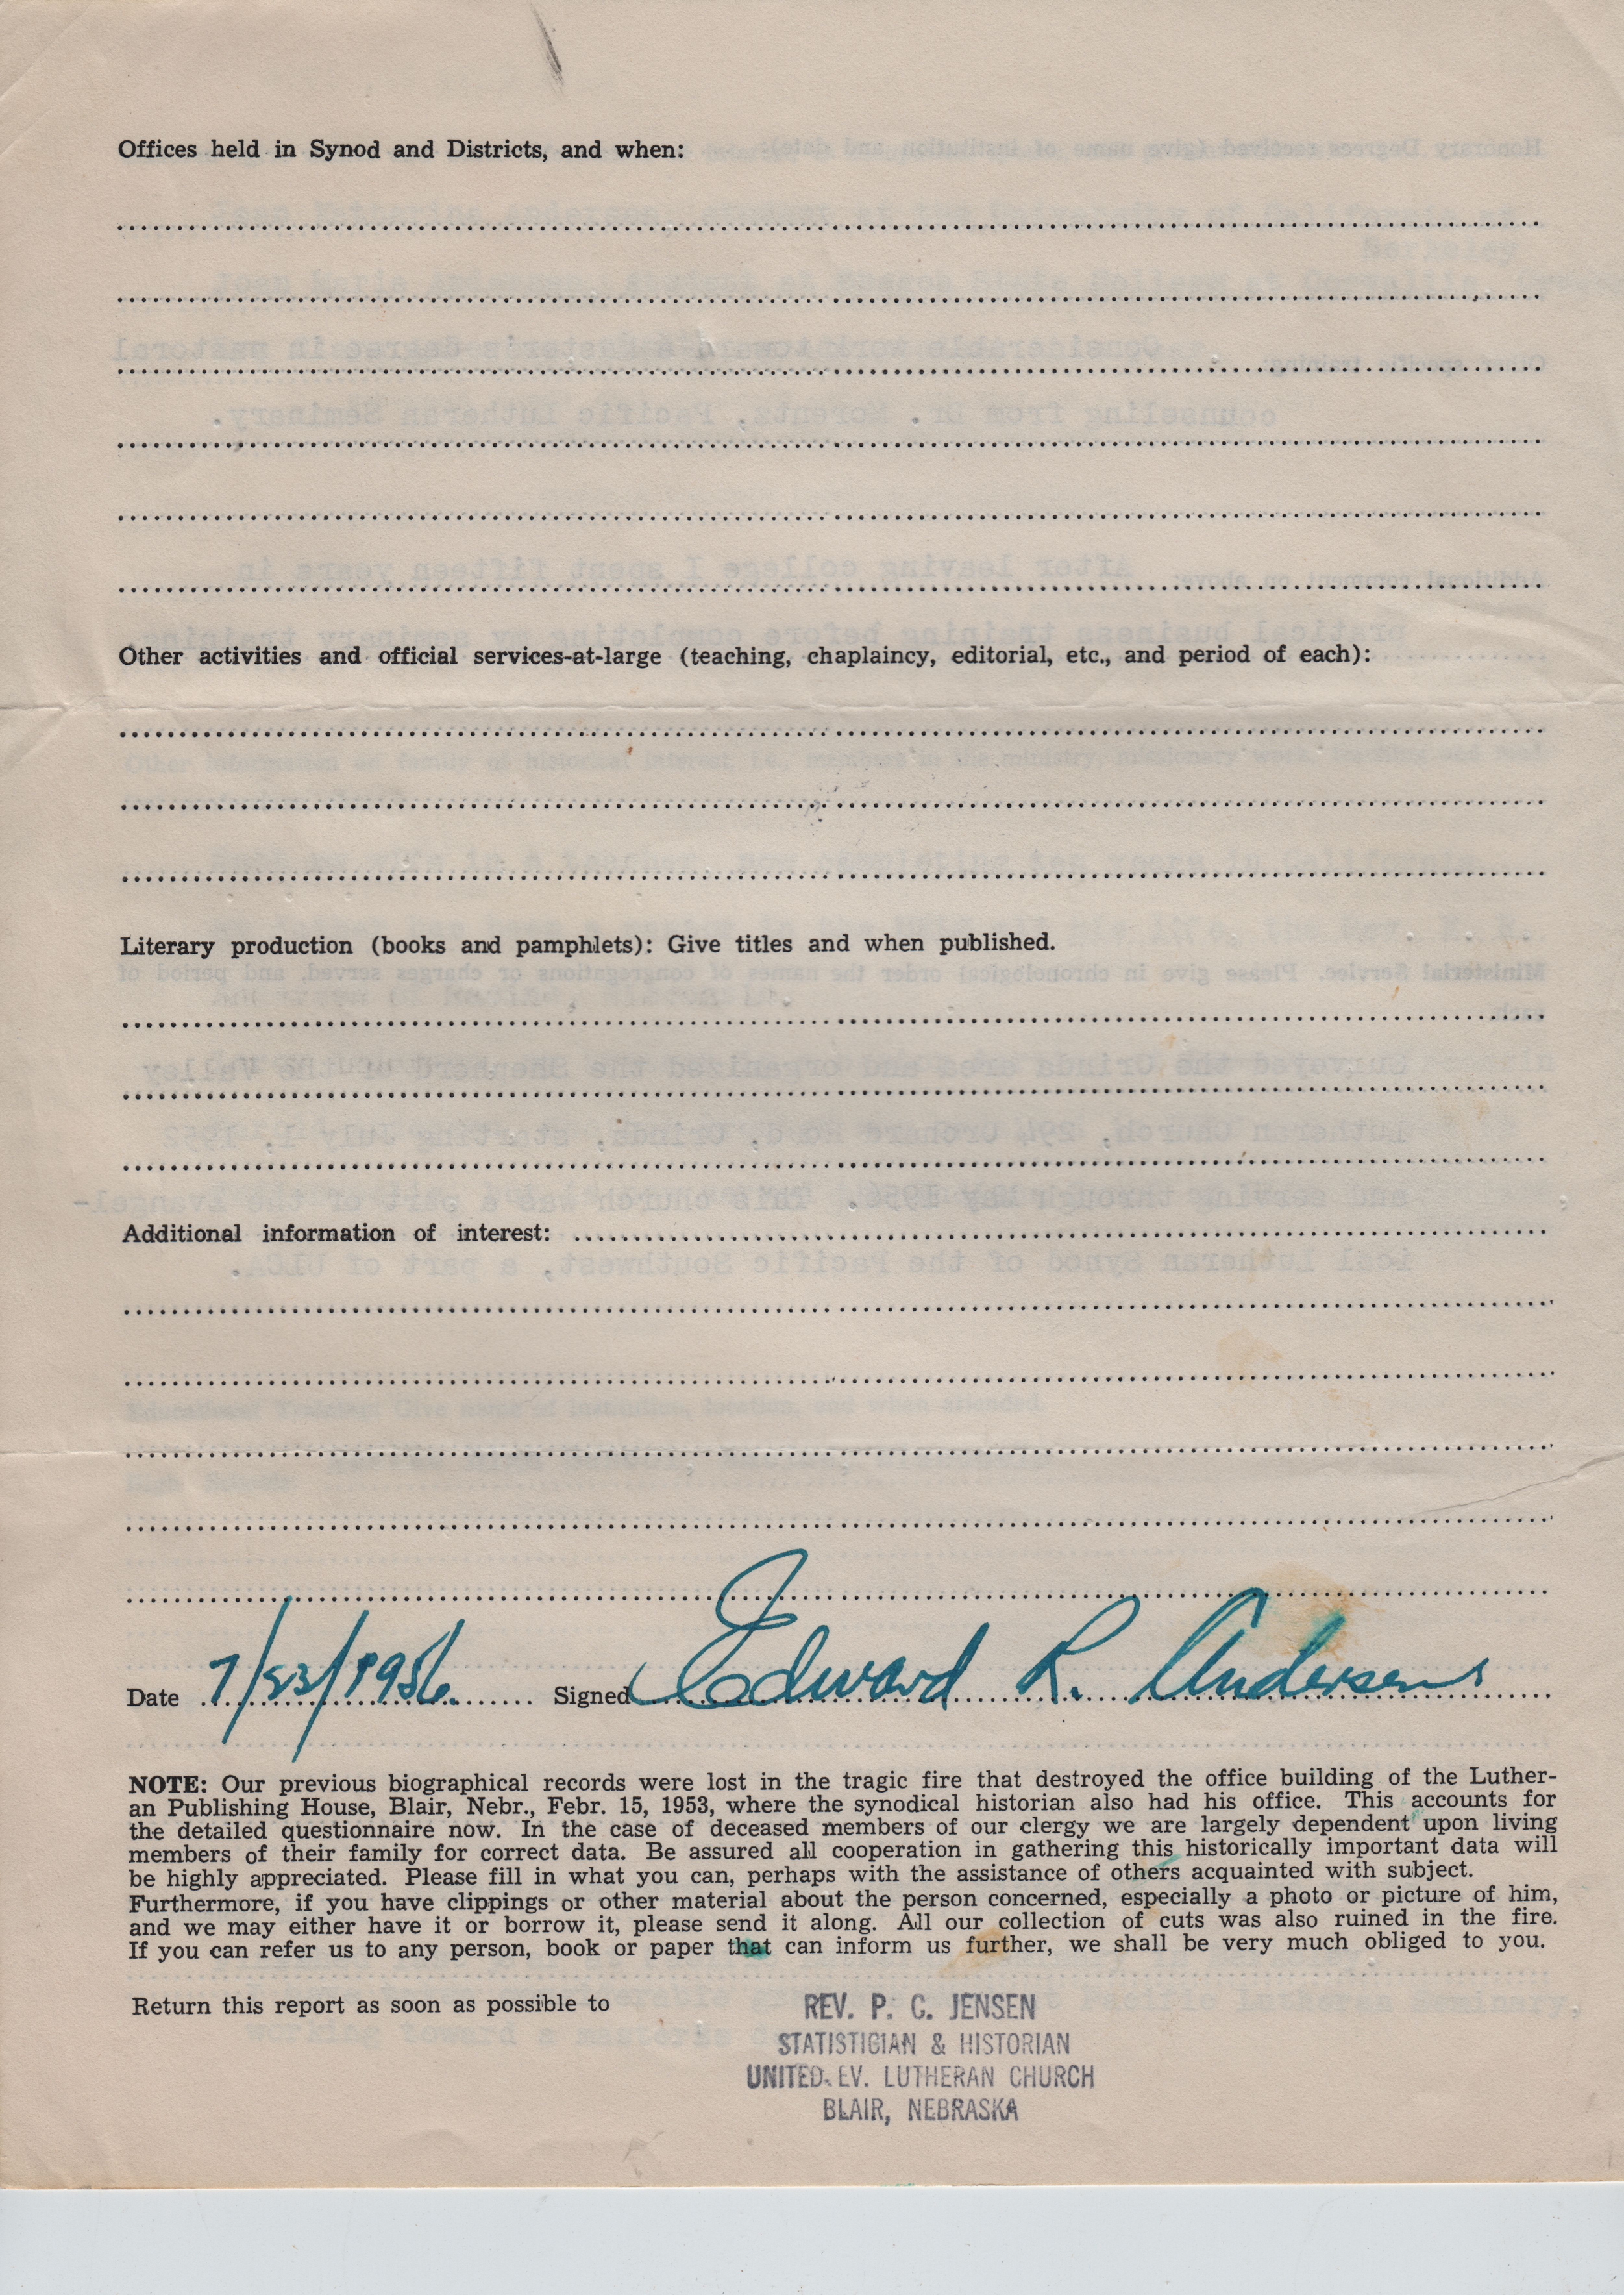 Offices held in Synod and Districts, and when:
Other activities and official services-at-large (teaching, chaplaincy, editorial, etc., and period of each):
Literary production (books and pamphlets): Give titles and when published.
Additional information of interest:
Date 7/23/1956. Signed Edward R. Andersen
NOTE: Our previous biographical records were lost in the tragic fire that destroyed the office building of the Luther-
an Publishing House, Blair, Nebr., Febr. 15, 1953, where the synodical historian also had his office. This accounts for
the detailed questionnaire now. In the case of deceased members of our clergy we are largely dependent upon living
members of their family for correct data. Be assured all cooperation in gathering this historically important data will
be highly appreciated. Please fill in what you can, perhaps with the assistance of others acquainted with subject.
Furthermore, if you have clippings or other material about the person concerned, especially a photo or picture of him,
and we may either have it or borrow it, please send it along. All our collection of cuts was also ruined in the fire.
If you can refer us to any person, book or paper that can inform us further, we shall be very much obliged to you.
Return this report as soon as possible to
REV. P. C. JENSEN
STATISTICIAN & HISTORIAN
UNITED EV. LUTHERAN CHURCH
BLAIR, NEBRASKA